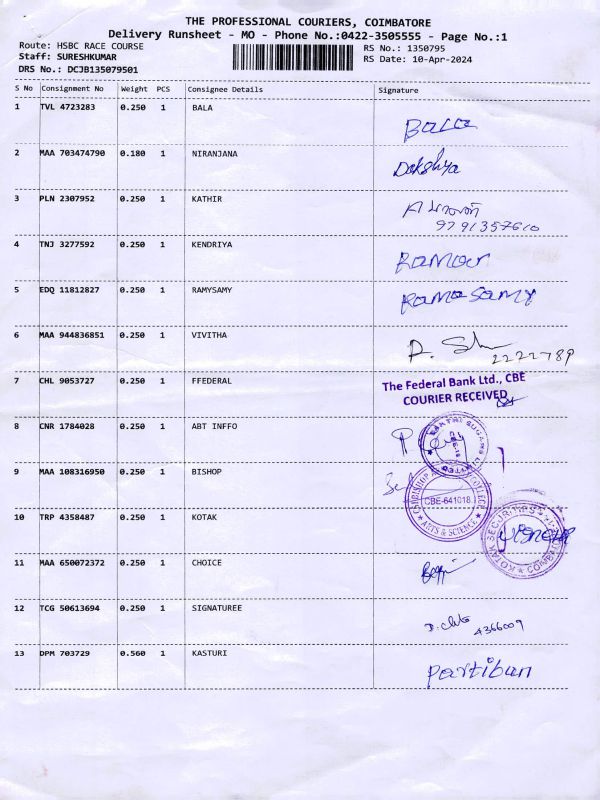 THE PROFESSIONAL COURIERS, COIMBATORE
Delivery Runsheet - MO - Phone No.:0422-3505555 - Page No.:1
Route: HSBC RACE COURSE
RS No.: 1350795
Staff: SURESHKUMAR
RS Date: 10-Apr-2024
DRS No.: DCJB135079501
S No Consignment No Weight PCS Consignee Details Signature
1 TVL 4723283 0.250 1 BALA
Bala
2 MAA 703474790 0.180 1 NIRANJANA
Dakshya
3 PLN 2307952 0.250 1 KATHIR
9791357610
4 TNJ 3277592 0.250 1 KENDRIYA
5 EDQ 11812827 0.250 1 RAMYSAMY
Ramasamy
6 MAA 944836851 0.250 1 VIVITHA
2222789
7 CHL 9053727 0.250 1 FFEDERAL
The Federal Bank Ltd., CBE
COURIER RECEIVED
8 CNR 1784028 0.250 1 ABT INFFO
SAKTHI SUGARS LIMITED
9 MAA 108316950 0.250 1 BISHOP
CBE-641018.
ARTS & SCIENCE
10 TRP 4358487 0.250 1 KOTAK
11 MAA 650072372 0.250 1 CHOICE
12 TCG 50613694 0.250 1 SIGNATUREE
4366009
13 DPM 703729 0.560 1 KASTURI
Partiban